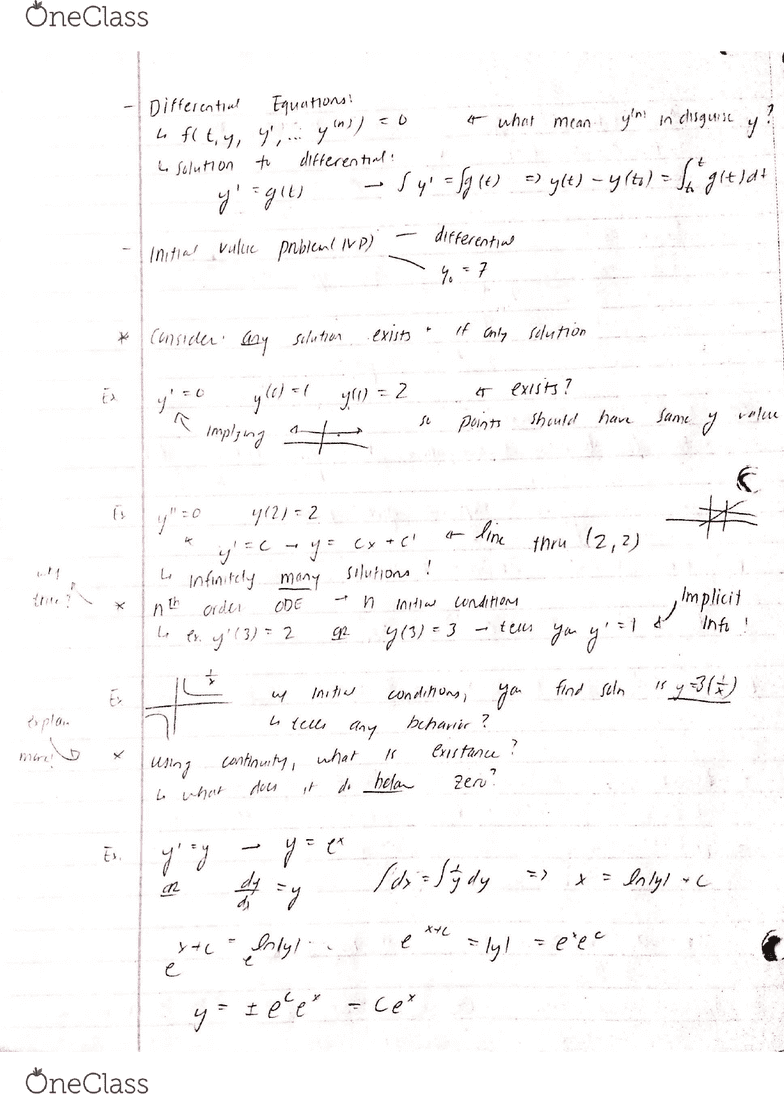 OneClass
- Differential Equations:
↳ f(t, y, y', ... y^(n)) = 0 ← what mean y^(n) in disguise y?
↳ solution to differential:
y' = g(t) → ∫ y' = ∫ g(t) => y(t) - y(t₀) = ∫_{t₀}^{t} g(t) dt
- Initial value problem (IVP) — differential
y₀ = 7
* Consider: any solution exists · if only solution
Ex. y' = 0 y(0) = 1 y(1) = 2 ← exists?
implying so points should have same y value
Ex y'' = 0 y(2) = 2
* y' = c → y = cx + c' ← line thru (2,2)
↳ infinitely many solutions!
why true? * nth order ODE → n initial conditions
↳ ex. y'(3) = 2 or y(3) = 3 → tells you y' = 1 & Implicit Info!
Ex 1/x w/ initial conditions, you find soln is y = 3(1/x)
↳ tells any behavior?
explain more! * using continuity, what is existance?
↳ what does it do below zero?
Ex. y' = y → y = e^x
or dy/dx = y ∫dx = ∫ 1/y dy => x = ln|y| + c
e^{x+c} = e^{ln|y|} e^{x+c} = |y| = e^x e^c
y = ± e^c e^x = Ce^x
OneClass